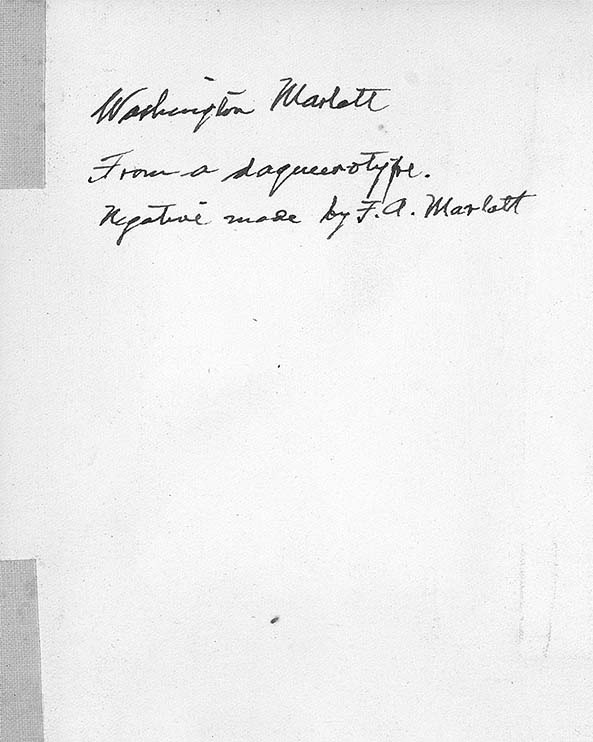 Washington Marlatt
From a daqueerotype.
Negative made by F. A. Marlatt